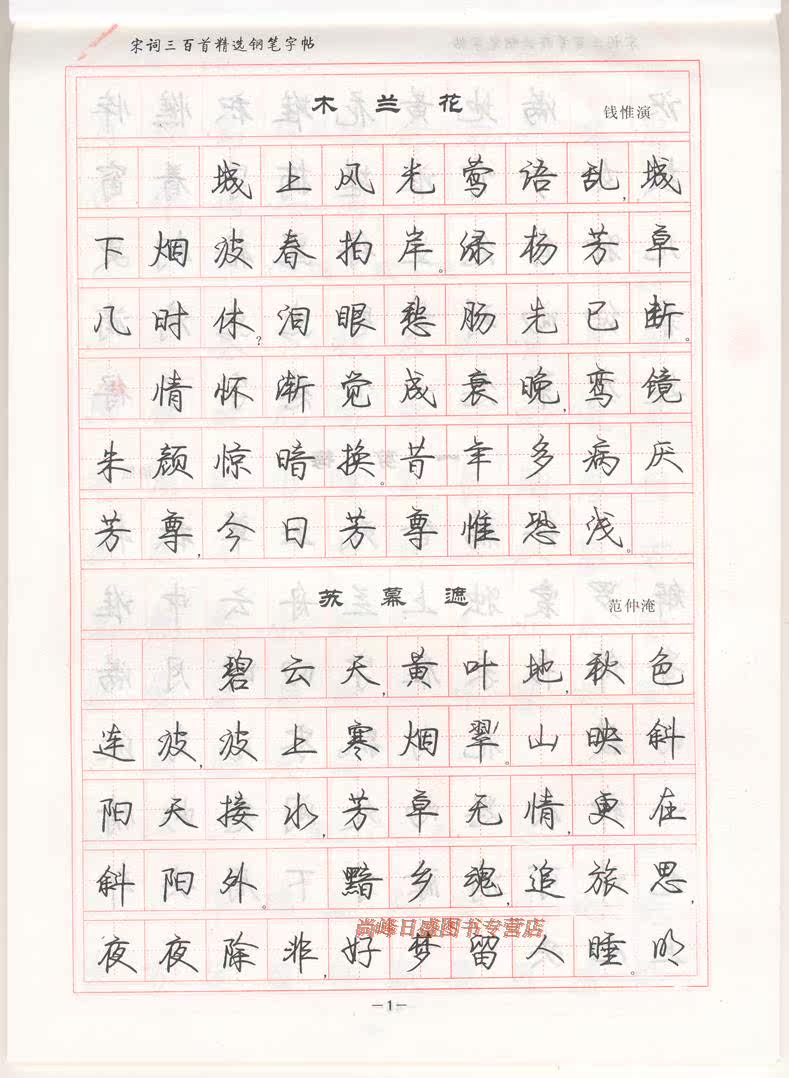 宋词三百首精选钢笔字帖
木兰花
钱惟演
城上风光莺语乱,城
下烟波春拍岸。绿杨芳草
几时休?泪眼愁肠先已断。
情怀渐觉成衰晚,鸾镜
朱颜惊暗换。昔年多病厌
芳尊,今日芳尊惟恐浅。
苏幕遮
范仲淹
碧云天,黄叶地,秋色
连波,波上寒烟翠。山映斜
阳天接水,芳草无情,更在
斜阳外。黯乡魂,追旅思,
尚峰日盛图书专营店
夜夜除非,好梦留人睡。明
－1－